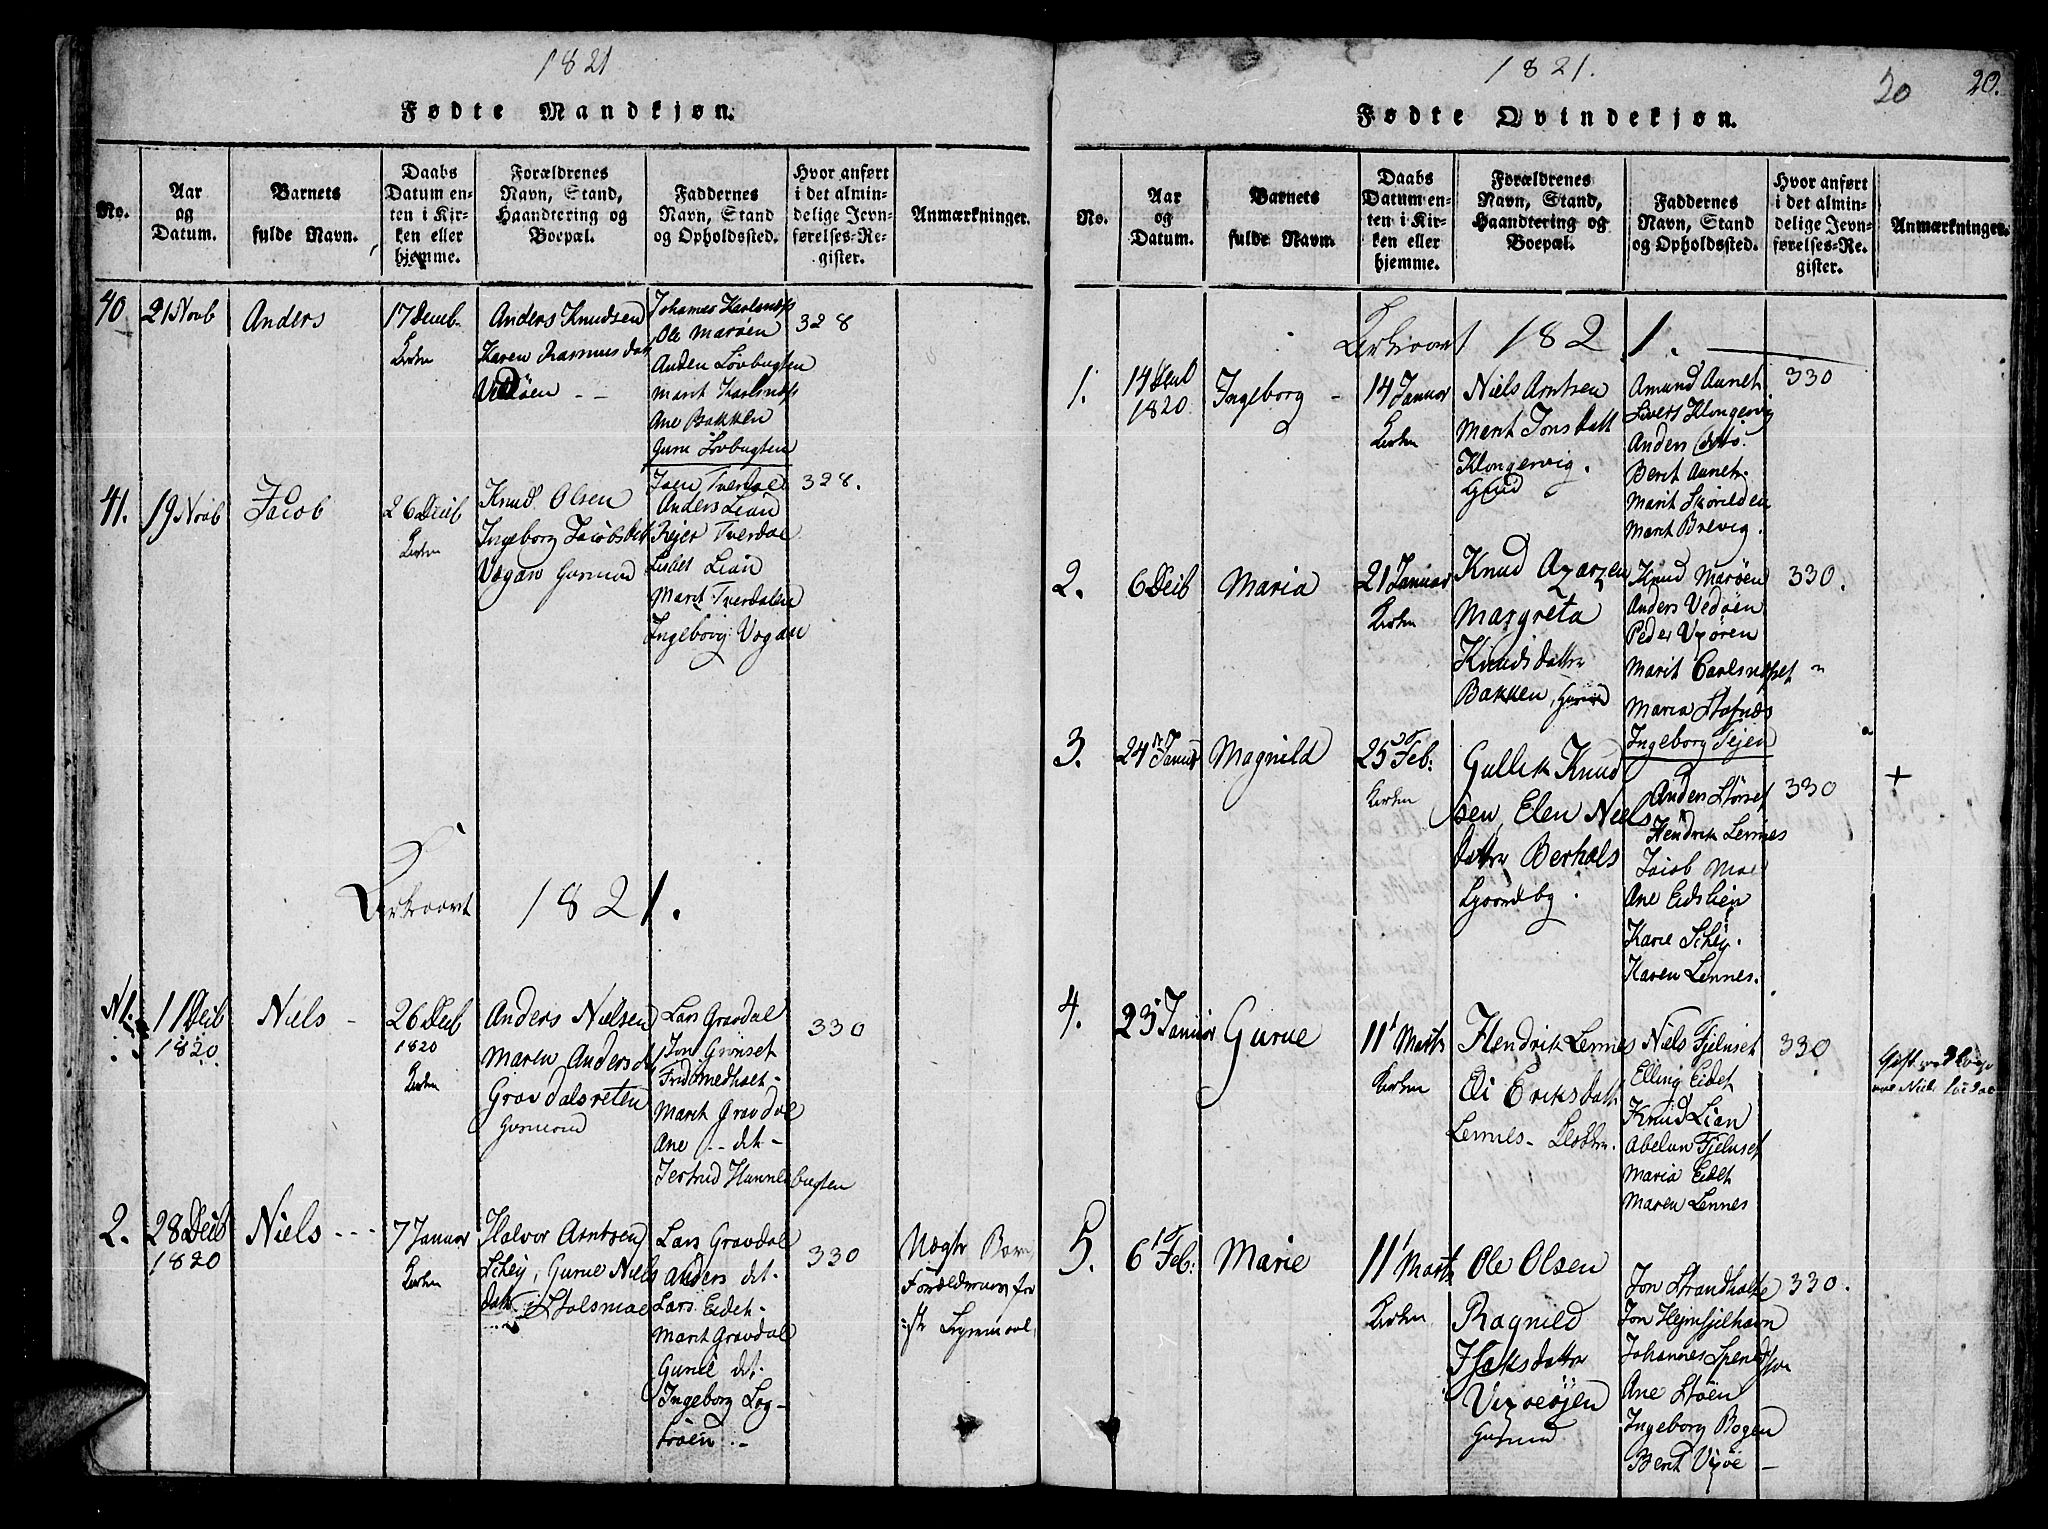 1821
Fødte Mandkjøn.
No.
Aar
og
Datum.
Barnets
fulde Navn.
Daabs
Datum en-
ten i Kir-
ken eller
hjemme.
Forældrenes
Navn, Stand,
Haandtering og
Boepæl.
Faddernes
Navn, Stand
og Opholdssted.
Hvor anført
i det almin-
delige Jevn-
førelses-Re-
gister.
Anmærkninger.
40
21 Novb
Anders
17 Decmb.
Kirken
Anders Knudsen
Karen Rasmusdatt
Vedøen
Johannes Karlsnæss
Ole Marøen
Anders Løvbugten
Marit Karlsnæss
Ane Bakken
Gurue Løvbugten
328
41.
19 Novb
Jacob
26 Decb
Kirken
Knud Olsen
Ingeborg Jacobsdatt
Vaagan
Joen Tverdal
Anders Lian
Rejer Tverdae
Lisbet Lian
Marit Tverdalen
Ingeborg Vogan
328.
Kirkeaaret
1821.
N1.
11 Decb
1820
Niels
26 Decb
1820
Kirken
Anders Nielsen
Maren Andersd
Gravdalsreten
Lars Gravdal
Jon Grønset
Marit Gravdal
Ane - - det -
Jertrud Hannebugten
330
2.
28 Decb
1820
Niels
7 Januar
Kirken
Halvor Arntsen
Schey, Gurue Niels
datt. Stolsmoe
Lars Gravdal
Anders det.
Lars Eidet.
Marit Gravdal
Gurue det.
Ingeborg Log-
trøen
330
Uægte Barn,
Forældrenes for
1ste Leiermaal
1821.
20
20.
Fødte Qvindekjøn.
No.
Aar
og
Datum.
Barnets
fulde Navn.
Daabs
Datum en-
ten i Kir-
ken eller
hjemme.
Forældrenes
Navn, Stand,
Haandtering og
Boepæl.
Faddernes
Navn, Stand
og Opholdssted.
Hvor anført
i det almin-
delige Jevn-
førelses-Re-
gister.
Anmærkninger.
Kirkeaaret 1821.
1.
14 Decb
1820
Ingeborg
14 Januar
Kirken
Niels Arntsen
Marit Jonsdatt
Klongervig.
Amund Aunet
Sivert Klongervig
Anders
Berit Aunet
Marit Skorilden
Marit Brevig.
330
2.
6 Decb
Maria
21 Januar
Kirken
Knud Ayarzen
Margreta
Knudsdatter
Bakken
Knud Marøen
Anders Vedøen
Peder Vyøren
Marit Carlsnæset
Maria Stafnæs
Ingeborg Tejen
330.
3.
24 Januar
Magnild
25 Feb.
Kirken
Gullik Knud
sen, Elen Niels
datter Berhals
Anders Störset
Hendrik Lennes
Jacob Moe
Ane Eidslien
Karie Schey.
Karen Lennes.
330
+
4.
23 Januar
Gurue
11 Marts
Kirken
Hendrik Lennes
Eli Eriksdatt
Lennes
Niels Fjelnset
Elling Eidet
Knud Lian
Abelun Fjelnset
Maria Eidet
Maren Lennes
330
5.
6 Feb:
Marie
11 Marts
Kirken
Ole Olsen
Ragnild
Isaksdatter
Jon Strandholte
Jon Hejmsjelhavn
Johannes
Ane Støen
Ingeborg Bogen
Berit Vyøe
330.